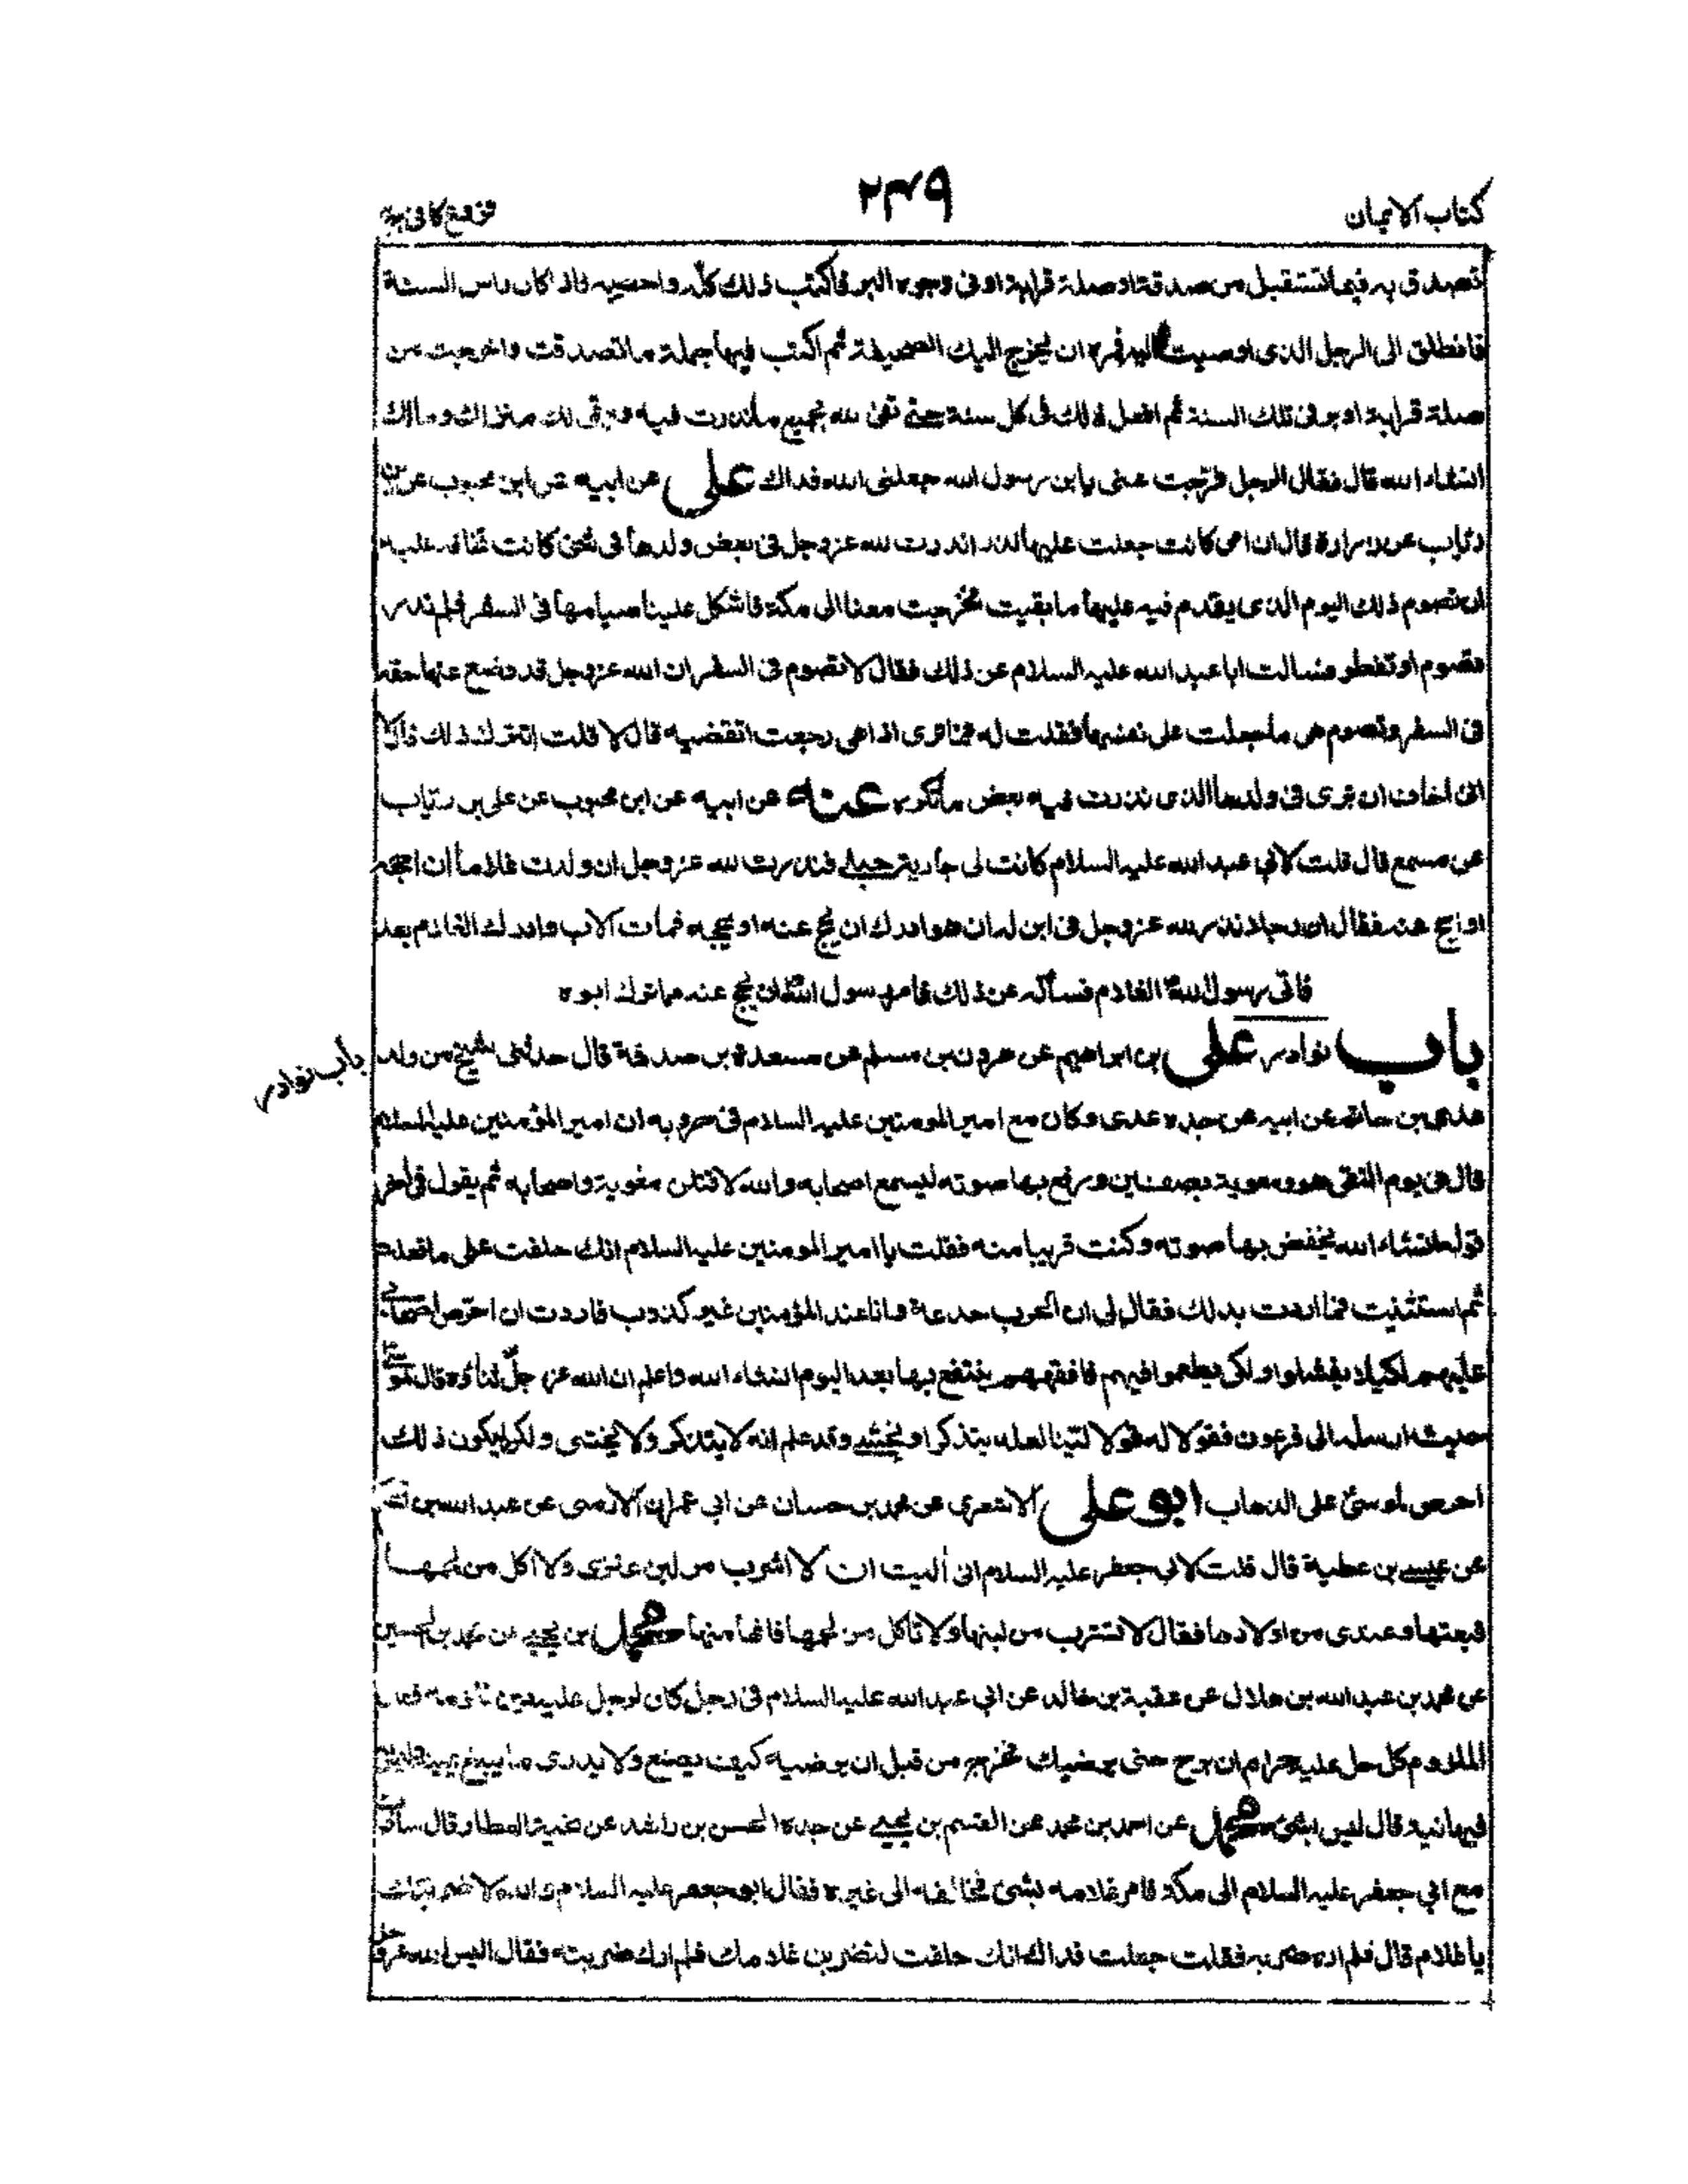 كتاب الايمان
٢٣٩
فروع كافى ج٢
تصدق به فيما تستقبل من صدقة او صلة قرابة او فى وجوه البر فاكتب ذلك كلّه واحصيه فاذا كان راس السنة
فانطلق الى الرجل الذى اوصيت اليه فمره ان يخرج اليك الصحيفة ثم اكتب فيها جملة ما تصدقت واخرجت من
صلة قرابة او بر فى تلك السنة ثم افعل ذلك فى كل سنة حتى تفى لله بجميع ما نذرت فيه ويبقى لك منزلك ومالك
انشاء الله قال فقال الرجل فرّجت عنى يا بن رسول الله جعلنى الله فداك على عن ابيه عن ابن محبوب عن بن
رئاب عن زرارة قال ان امى كانت جعلت عليها نذرا نذرت لله عزوجل فى بعض ولدها فى شئ كانت تخافه عليه
ان تصوم ذلك اليوم الذى يقدم فيه عليها ما بقيت فخرجت معنا الى مكة فاشكل علينا صيامها فى السفر فلم ندر
تصوم او تفطر فسالت ابا عبد الله عليه السلام عن ذلك فقال لا تصوم فى السفر ان الله عزوجل قد وضع عنها حقه
فى السفر وتصوم هى ما جعلت على نفسها فقلت له فما ترى اذا هى رجعت اتقضيه قال لا قلت افتترك ذلك قال لا
انى اخاف ان ترى فى ولدها الذى نذرت فيه بعض ما تكره عنه عن ابيه عن ابن محبوب عن على بن رئاب
عن مسمع قال قلت لابى عبد الله عليه السلام كانت لى جارية حبلى فنذرت لله عزوجل ان ولدت غلاما ان احجه
او احج عنه فقال ان رجلا نذر لله عزوجل فى ابن له ان هو ادرك ان يحج عنه او يحجه فمات الاب وادرك الغلام بعد
فاتى رسول الله الغلام فسأله عن ذلك فامر رسول الله ان يحج عنه مما ترك ابوه
باب نوادر على بن ابراهيم عن هرون بن مسلم عن مسعدة بن صدقة قال حدثنى شيخ من ولد
باب نوادر
عدى بن حاتم عن ابيه عن جده عدى وكان مع امير المومنين عليه السلام فى حروبه ان امير المؤمنين عليه السلام
قال فى يوم التقى هو ومعوية بصفين ورفع بها صوته ليسمع اصحابه والله لاقتلن معوية واصحابه ثم يقول فى اخر
قوله انشاء الله يخفض بها صوته وكنت قريبا منه فقلت يا امير المومنين عليه السلام انك حلفت على ما فعلت
ثم استثنيت فما اردت بذلك فقال لى ان الحرب خدعة وانا عند المؤمنين غير كذوب فاردت ان احرّض اصحابى
عليهم لكيلا يفشلوا ولكى يطمعوا فيهم فافقههم ينتفع بها بعد اليوم انشاء الله واعلم ان الله عز جلّ ثناؤه قال لموسى
حيث ارسله الى فرعون فقولا له قولا لينا لعله يتذكر او يخشى وقد علم انه لا يتذكر ولا يخشى ولكن ليكون ذلك
احرص لموسى على الذهاب ابو على الاشعرى عن محمد بن حسان عن ابى عمران الارمنى عن عبد الله بن الحكم
عن عيسى بن عطية قال قلت لابى جعفر عليه السلام انى أليت ان لا اشرب من لبن عنزى ولا اكل من لحمها
فبعتها وعندى من اولادها فقال لا تشرب من لبنها ولا تاكل من لحمها فانها منها محمد بن يحيى عن محمد بن الحسين
عن محمد بن عبد الله بن هلال عن عقبة بن خالد عن ابى عبد الله عليه السلام فى رجل كان لرجل عليه دين فلزمه فقال
الملزوم كل حل عليه حرام ان برح حتى يرضيك فخرج من قبل ان يرضيه كيف يصنع ولا يدرى ما يبلغ يمينه وليس له
فيها نية قال ليس بشئ محمد عن احمد بن محمد عن القسم بن يحيى عن جده الحسن بن راشد عن نجية العطار قال سافرت
مع ابى جعفر عليه السلام الى مكة فامر غلامه بشئ فخالفه الى غيره فقال ابو جعفر عليه السلام والله لاضربنّك
يا غلام قال فلم اره ضربه فقلت جعلت فداك انك حلفت لتضربن غلامك فلم ارك ضربته فقال اليس الله عزوجل